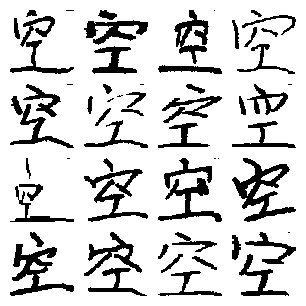 空空空空
空空空空
空空空空
空空空空